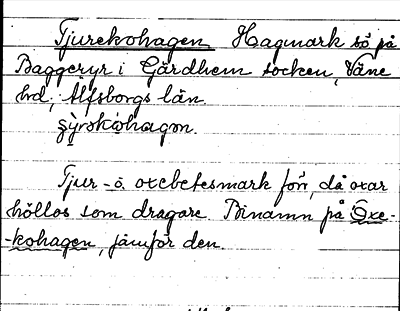 Tjurekohagen Hagmark sö på
Baggeryr i Gärdhem socken, Väne
hd, Älfsborgs län.
Tjur- o. oxebetesmark förr, då oxar
höllos som dragare. Binamn på Oxe-
-kohagen, jämför den.